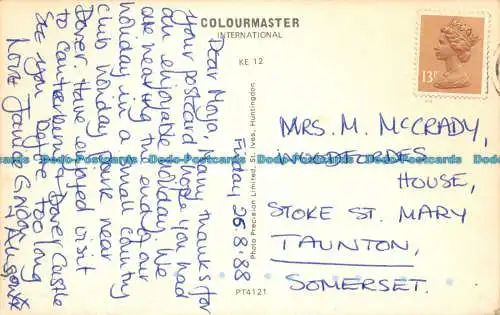 COLOURMASTER
INTERNATIONAL
KE 12
13P
Friday 26.8.88
Dear Moya, Many thanks for
your postcard. I hope you had
an enjoyable holiday. We
are nearing the end of our
holiday in a small country
club holiday park near
Dover. Have enjoyed visit
to Canterbury & Dover Castle
See you before too long
Love Jany
Photo Precision Limited, St. Ives, Huntingdon
PT4121
MRS. M. MCCRADY,
WOODFORDES
HOUSE,
STOKE ST. MARY
TAUNTON,
SOMERSET.
Dodo-Postcards.com